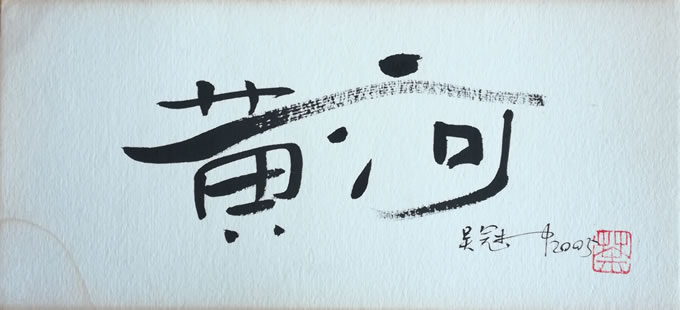 黄河
吴冠中 2005